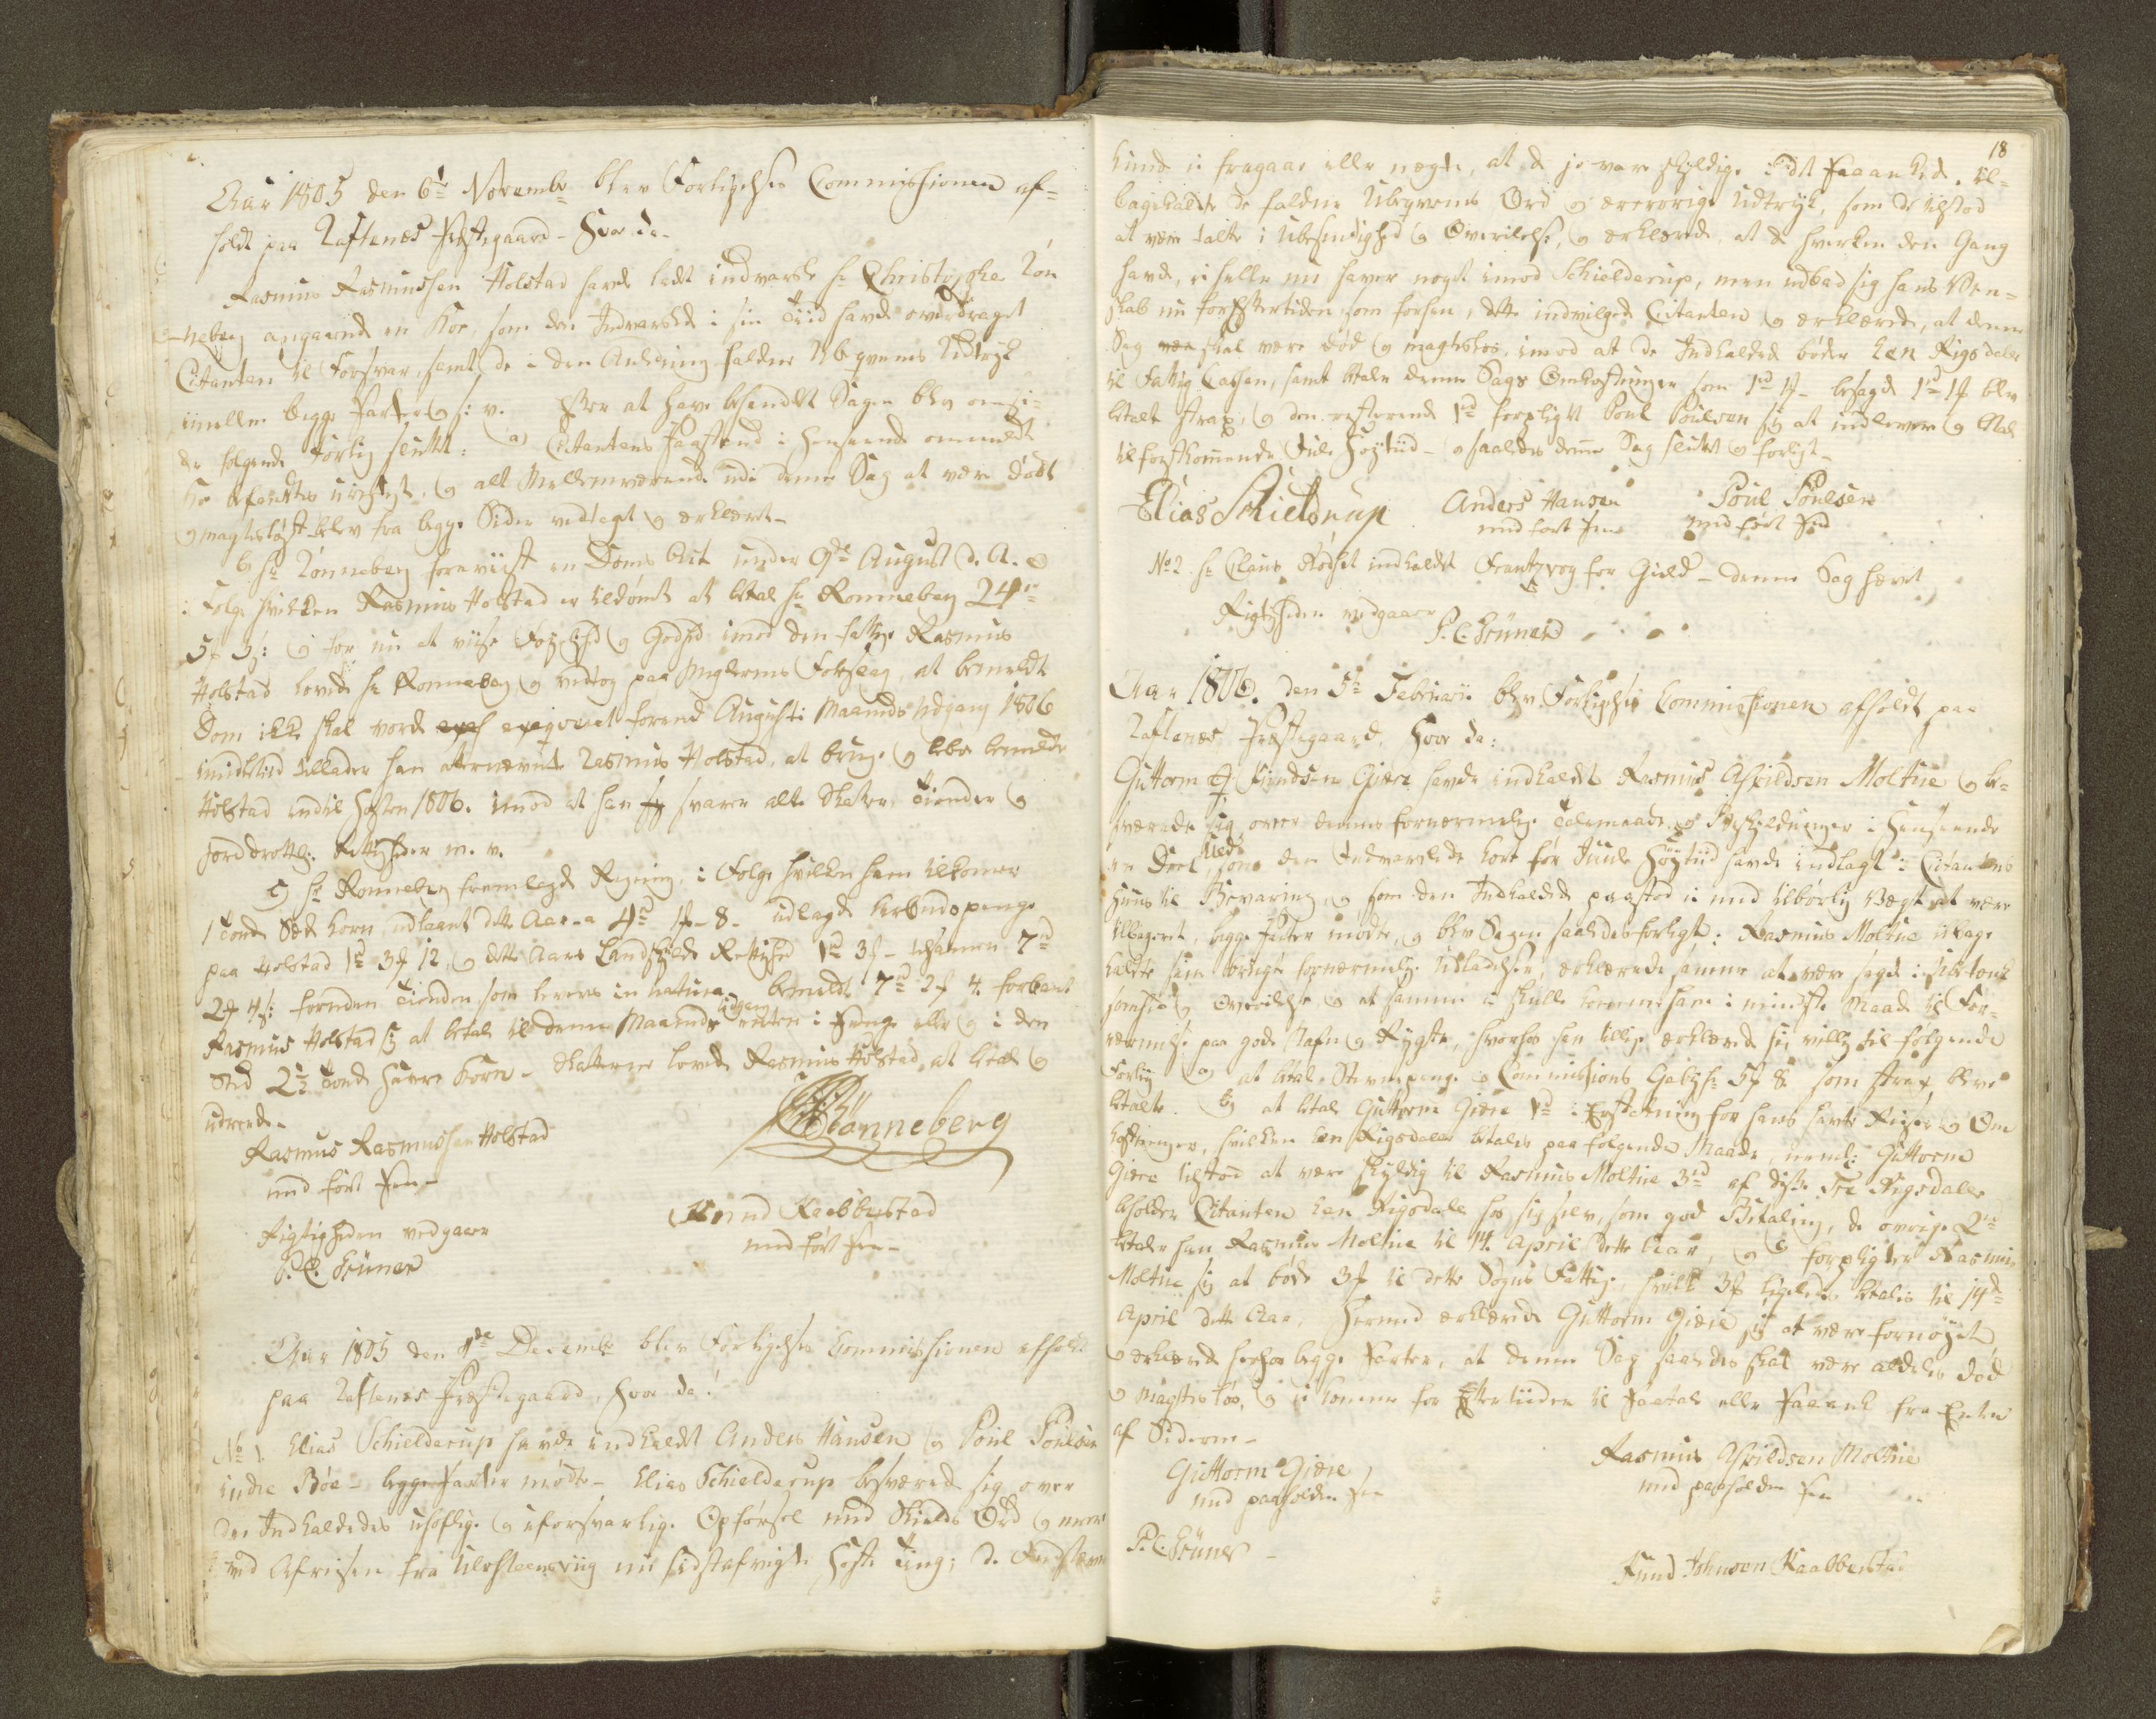 Aar 1805 den 6te Novembr blev Forligelses Commissionen af=
holdt paa Raftenæs Præstegaard - hvor da -
Rasmus Rasmussen Holstad havde ladet indvarsle hr Christopher Røn
neberg angaaende en Koe, som den Indvarslede i sin Tiid havde overdraget
Citanten til Forsvar, samt de i den Anledning faldne Ubeqvems Udtryk
imellem begge Parter s: v. Efter at have behandlet Sagen blev omsi=
der følgende Forlig sluttet: a) Citantens Paastand i Henseende ommeldte
Koe befandtes urigtigt, og alt Mellemværende udi denne Sag at være dødt
og magtesløst blev fra begge Sider vedtaget og erklæret -
b hr Rønneberg foreviiste en Doms Act under 9de August d. A.
i Følge hvilken Rasmus Holstad er tildømt at betale hr Rønneberg 24rd
5 3s: og for nu at viise Føyelighed og Godhed imod den fattige Rasmus
Holstad lovede hr Rønneberg og vedtog paa Mæglernes Forslag, at bemeldte
Dom ikke skal vorde exeqveret forend Augusti Maaneds Udgang 1806
imidlertid tillader han bemeldte Rasmus Holstad, at bruge og beboe bemeldte
Holstad indtil Høsten 1806. imod at han svarer alle Skatter, Tiender og
Jorddrottl: Rettigheder m. v.
c) hr Rønneberg fremlagde Regning, i Følge hvilken ham tilkommer
1 Tønde Sæd Korn udlaant dette Aar a 4rd 1 - 8 - udlagde Arbeidspenge
paa Holstad 1rd 3 12, og dette Aars Landskylds Rettighed 1rd 3 - tilsammen 7rd
2 4s: foruden Tienden som leveres in natura - bemeldte 7rd 2 4 forbandt
Rasmus Holstad sig at betale til denne Maaneds Udgang enten i Penge eller og i den
Sted 2½ Tønde Havre Korn - Skatterne lovede Rasmus Holstad, at betale og
udrede -
Rasmus Rasmussen Holstad
med ført Pen -
Rønneberg
Rigtigheden vedgaaer
P. C. Bruner
Knud Raabbestad
med ført Pen -
Aar 1805 den 4de Decembr blev Forligelses Commissionen afholdt
paa Raftenæs Præstegaard, hvor da!
No 1. Elias Schielderup havde indkaldet Anders Hansen og Poul Poulsen
indre Bøe - begge Parter mødte - Elias Schielderup besværede sig over
de Indkaldedes uhøflige og uforsvarlige Opførsel med Skields Ord og meere
ved Afreisen fra Ulvsteensviig nu sidstafvigte Høste Ting; de Indstævnte
18
kunde ei fragaae eller nægte, at de jo vare skyldige i det Paaankede. til=
bagekaldte de faldne Ubeqvems Ord og ærerørige Udtryk, som de tilstod
at være talte i Ubesindighed og Overilelse, og erklærede at de hverken den Gang
havde, ei heller nu haver noget imod Schielderup, men udbad sig hans Ven=
skab nu for Eftertiden som forhen, dette indvilgede Citanten og erklærede, at denne
Sag skal være død og magtesløs, imod at de Indkaldede bøder Een Rigsdaler
til Fattig Cassen, samt betaler denne Sags Omkostninger som 1rd 1 - besagde 1rd 1 blev
betalt strax, og den resterende 1rd forpligtet Poul Poulsen sig at indlevere og betale
til førstkommende Jule Høytiid - og saaledes denne Sag sluttet og forligt -
Elias Schielderup Anders Hansen Poul Poulsen
med ført Pen med ført Pen
No 2. hr Claus Rødset indkaldet Frantzvog for Gield - denne Sag hævet
Rigtigheden vedgaaer
P. C. Bruner
Aar 1806. den 5te Februarii blev Forligelses Commissionen afholdt paa
Raftenæs Præstegaard, hvor da:
Guttorm Knudsen Giære havde indkaldet Rasmus Askildsen Moltue og be=
sværede sig over dennes fornærmelige Talemaade og Beskyldninger i Henseende
en Deel Uld som den Indvarslede kort før Juule Høytiid havde indlagt i Citantens
Huus til Bevaring, og som den Indkaldede paastod ei med tilbørlig Vægt at være
tilbageret, begge Parter mødte, og blev Sagen saaledes forligt: Rasmus Moltue tilbage
kaldte sine brugte fornærmelige Udladelser, erklærede samme at være sagde i ubetænk
somhed og Overilelse og at samme ei skulle komme ham i mindste Maade til For=
nærmelse paa gode Nafn og Rygte, hvorhos han tillige erklærede sig villig til følgende
Forlig a) at betale Stevnepenge og Commissions Gebyhr 5 8 som strax blev
betalte. b) at betale Guttorm Giære 1rd i Erstatning for hans havte Reiser og Om
kostninger, hvilken Een Rigsdaler betales paa følgende Maade, neml: Guttorm
Giære tilstod at være skyldig til Rasmus Moltue 3rd af disse Tre Rigsdaler
beholder Citanten Een Rigsdaler hos sig selv, som god Betaling, de øvrige 2rd
betaler han Rasmus Moltue til 14. April dette Aar, og c) forpligter Rasmus
Moltue sig at bøde 3 til dette Sogns Fattige, hvilke 3 ligeledes betales til 14de
April dette Aar, Hermed erklærede Guttorm Giære sig at være fornøyet
og erklærede herhos begge Parter, at denne Sag saaledes skal være aldeles død
og magtesløs, og ei komme for Eftertiiden til Paatale eller Paaank fra Enten
af Siderne -
Guttorm Giære
med paaholden Pen
Rasmus Askildsen Moltue
med paaholden Pen
P. C. Bruner -
Knud Johnsen Raabbestad